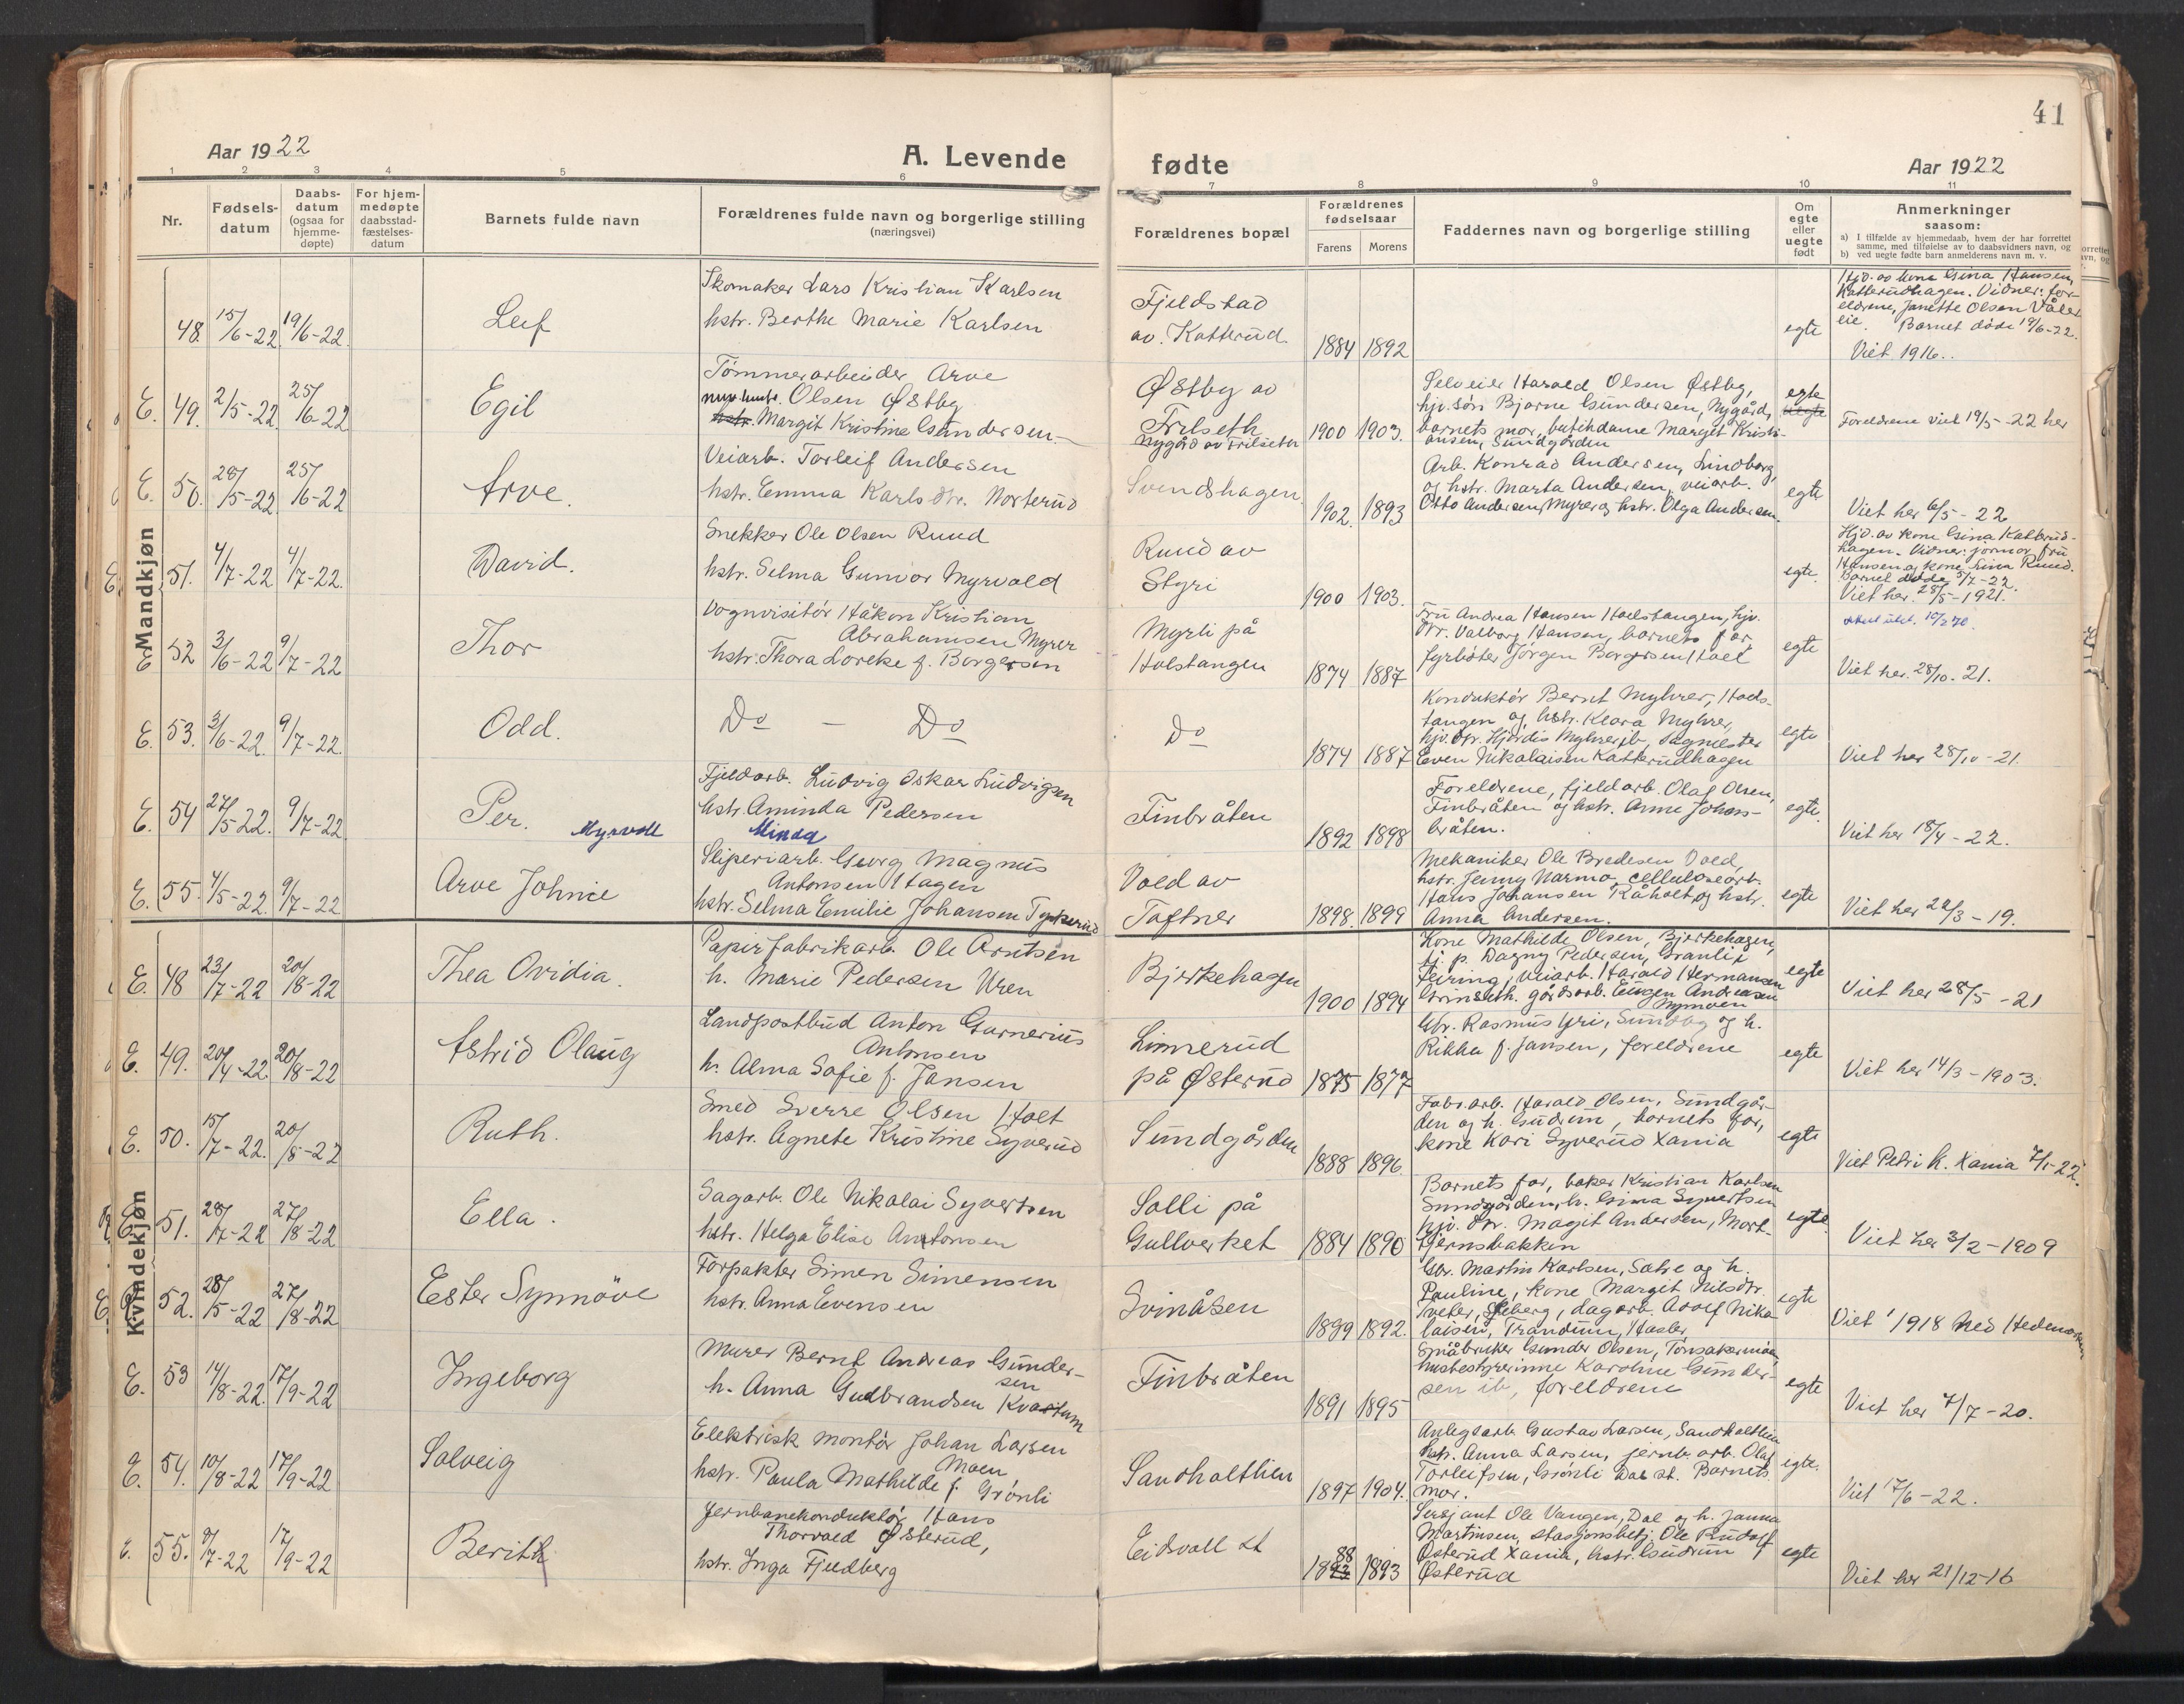 41
Aar 1922
A. Levende
fødte
Aar 1922
1 2 3 4 5 6 7 8 9 10 11
Nr.
Fødsels-
datum
Daabs-
datum
(ogsaa for
hjemme-
døpte)
For hjem-
medøpte
daabsstad-
fæstelses-
datum
Barnets fulde navn
Forældrenes fulde navn og borgerlige stilling
(næringsvei)
Forældrenes bopæl
Forældrenes
fødselsaar
Farens
Morens
Faddernes navn og borgerlige stilling
Om
egte
eller
uegte
født
Anmerkninger
saasom:
a) I tilfælde av hjemmedaab, hvem der har forrettet
samme, med tilføielse av to daabsvidners navn, og
b) ved uegte fødte barn anmelderens navn m. v.
Mandkjøn
48. 15/6-22. 19/6-22.
Leif
Skomaker Lars Kristian Karlsen
hstr. Berthe Marie Karlsen
Fjeldstad
av. Katterud
1884 1892
egte
Hjd. av kone Gina Hansen,
Katterudhagen. Vidner: for-
eldrene, Janette Olsen Våler
eie. Barnet døde 19/6-22.
Viet 1916..
E. 49. 2/5-22 25/6-22
Egil
Tømmerarbeider Arve
Olsen Østby
hstr. Margit Kristine Gundersen
Østby av
Frilseth
Nygård av Frilseth
1900 1903.
Selveier Harald Olsen Østby,
hjv. søn Bjarne Gundersen, Nygård,
barnets mor, butikdame Margit Kristi-
ansen, Sundgården
egte
uegte
Foreldrene viet 19/5-22 her
E. 50. 28/5-22 25/6-22
Arve.
Veiarb. Torleif Andersen
hstr. Emma Karlsdtr. Norterud
Svendshagen
1902. 1893
Arb. Konrad Andersen, Lindborg,
og hstr. Marta Andersen, veiarb.
Otto Andersen, Myrer og hstr. Olga Andersen.
egte
Viet her 6/5-22
E. 51. 4/7-22 4/7-22.
David.
Snekker Ole Olsen Ruud
hstr. Selma Gunvor Myrvold
Ruud av
Styri
1900 1903.
egte.
Hjd. av kone Gina Katterud-
hagen. Vidner: jormor fru
Hansen og kone Lina Ruud.
Barnet døde 5/7-22.
Viet her. 28/5-1921.
E. 52 3/6-22 9/7-22
Thor
Vognvisitør Håkon Kristian
Abrahamsen Myrer
hstr. Thora Loreke f. Borgersen
Myrli på
Holstangen
1874 1887
Fru Andrea Hansen Holstangen, hjv.
dtr. Valborg Hansen, barnets far,
fyrbøter Jørgen Borgersen Holt
egte
Viet her. 28/10. 21.
E. 53. 3/6-22. 9/7-22.
Odd.
Do – Do
Do
1874 1887
Konduktør Bernt Myhrer, Hols-
tangen og hstr. Klara Myhrer,
hjv. dtr. Hjørdis Myhrer ib,
Even Nikolaisen Katterudhagen
egte
Viet her 28/10-21.
E. 54 27/5-22. 9/7-22
Per. Myrvoll
Fjeldarb. Ludvig Oskar Ludvigsen
hstr. Aminda Pedersen
Minda
Finbråten
1892 1898
Foreldrene, fjeldarb. Olaf Olsen,
Finbråten og hstr. Anne Johans-
bråten.
egte.
Viet her 18/4-22.
E. 55. 4/5-22. 9/7-22
Arve Johnie
Sliperiarb. Georg Magnus
Antonsen Hagen
hstr. Selma Emilie Johansen Tyskerud
Vold av
Toftner
1898. 1899
Mekaniker Ole Bredesen Vold,
hstr. Jenny Narmo, celluloseeørb.
Hans Johansen Råholt og hstr.
Anna Andersen.
egte
Viet her 22/3-19.
Kvindekjøn
E. 48 23/7-22 20/8-22
Thea Ovidia.
Papirfabrikarb. Ole Arntsen
h. Marie Pedersen Uren
Bjerkehagen
1900 1894
Kone Mathilde Olsen, Bjerkehagen,
tj. p. Dagny Pedersen, Granli i
Feiring, veiarb. Harald Hermansen
Grinseth. gårdsarb. Eugen Andreasen
Nymoen
egte
Viet her 28/5-21
E. 49. 20/4-22. 20/8-22
Astrid Olaug
Landpostbud Anton Gunerius
Antonsen
h. Alma Sofie f. Jansen
Linnerud
på Østerud
1875 1877
Gbr. Rasmus Yri, Sundby og h.
Rikka f. Jansen, foreldrene
egte
Viet her 14/3-1903.
E. 50. 15/7-22. 20/8-22
Ruth.
Smed Sverre Olsen Holt
hstr. Agnete Kristine Syverud
Sundgården
1888 1896.
Fabr. arb. Harald Olsen, Sundgår-
den og h. Gudrun, barnets far,
kone Kari Syverud Xania
egte
Viet Petri K. Xania 7/1-22.
E. 51. 28/7-22 27/8-22
Ella.
Sagarb. Ole Nikolai Syvertsen
hstr. Helga Elise Antonsen
Solli på
Gullverket
1884 1890
Barnets far, baker Kristian Karlsen
Sundgården, h. Gina Syvertsen
hjv. dtr. Magit Andersen, Mort-
tjernsbakken
egte.
Viet her 3/2-1909
E. 52. 28/5-22 27/8-22
Ester Synnöve
Forpakter Simen Simensen
hstr. Anna Evensen
Svinåsen
1899 1892.
Gbr. Martin Karlsen, Sætre og h.
Pauline, kone Margit Nilsdtr.
Tveter, dagarb. Adolf Nika-
laisen, Trandum, Hasler.
egte
Viet 1918 Ned Hedemarken
E. 53 14/8-22. 17/9-22
Ingeborg
Murer Bernt Andreas Gunder-
sen
h. Anna Gudbrandsen Kvartum
Finbråten
1891 1895
Småbruker Gunder Olsen, Torsakermoen,
husbestyrerinne Karoline Gunder-
sen ib, foreldrene
egte
Viet her 4/7-20.
E. 54. 10/8-22 17/9-22
Solveig
Elektrisk montør Johan Larsen
Moen
hstr. Paula Mathilde f. Grønli
Sandholtlien
1897 1904.
Anlegsarb Gustav Larsen, Sandholtlien
hstr. Anna Larsen, jernb. arb. Olaf
Torleifsen, Grønli Dal st. Barnets
mor.
egte.
Viet 17/6-22.
E. 55. 9/7-22 17/9-22
Berith
Jernbanekonduktør Hans
Thorvald Østerud,
hstr. Inga Fjeldberg
Eidsvoll st
88
1893 1893
Sersjant Ole Vangen, Dal og h. Janna
Martinsen, stasjonsbetj. Ole Rudolf
Østerud Xania, hstr. Gudrun
Østerud
egte
Viet her 21/12-16